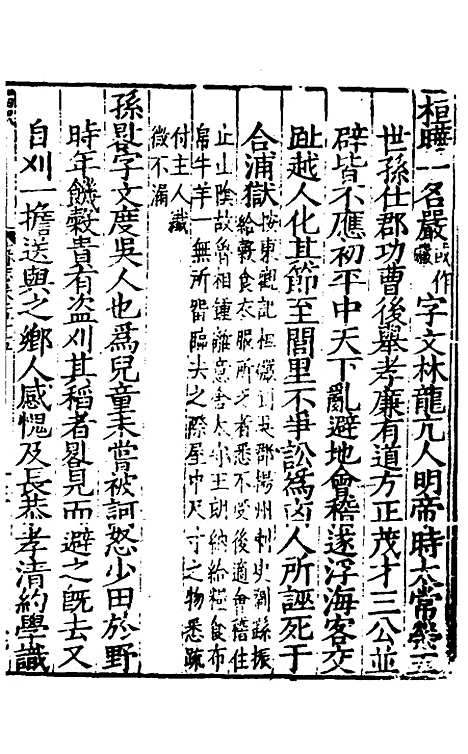 桓曄一名嚴或作礹字文林龍亢人明帝時太常榮五
世孫仕郡功曹後舉孝廉有道方正茂才三公並
辟皆不應初平中天下亂避地會稽遂浮海客交
趾越人化其節至閭里不爭訟爲凶人所誣死于
合浦獄按東觀記桓礹到吳郡揚州刺史劉繇振
給穀食衣服所乏者悉不受後適會稽住
止山陰故魯相鍾離意舍太守王朗納給糧食布
帛牛羊一無所留臨去之際屋中尺寸之物悉疏
付主人纖
微不漏
孫晷字文度吳人也爲兒童未嘗被訶怒少田於野
時年饑穀貴有盜刈其稻者晷見而避之旣去又
自刈一擔送與之鄉人感愧及長恭孝清約學識